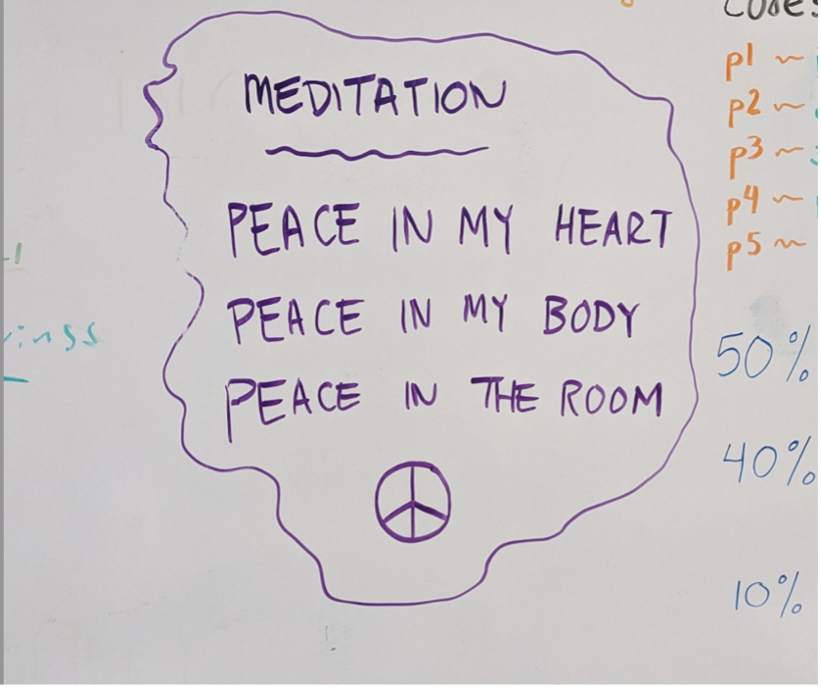 MEDITATION
PEACE IN MY HEART
PEACE IN MY BODY
PEACE IN THE ROOM
p1 ~
p2 ~
p3 ~
p4 ~
p5 ~
50%
40%
10%